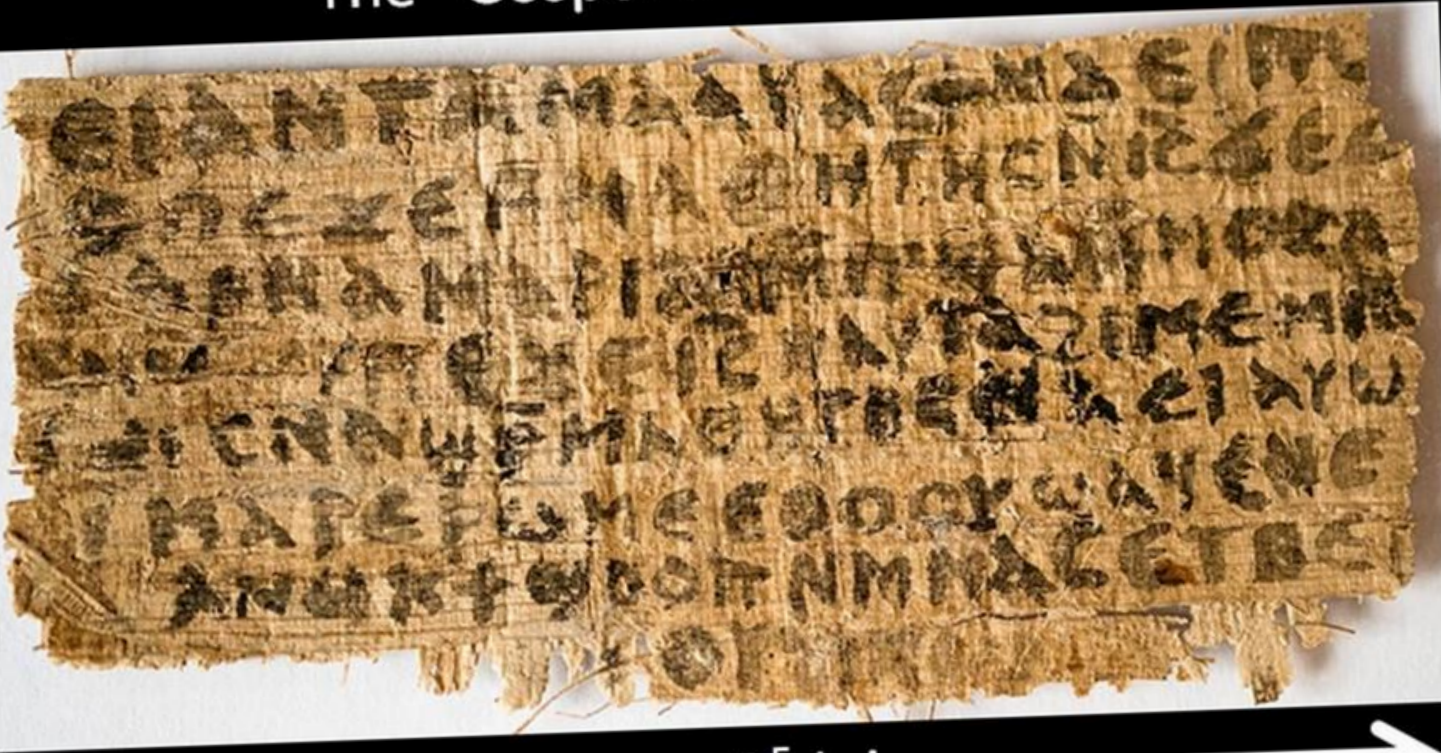 The
ⲉⲓ ⲁⲛ ⲧⲁⲙⲁⲁⲩ ⲁⲥϯ ⲛⲁⲉⲓ
ⲡⲉϫⲉ ⲙⲙⲁⲑⲏⲧⲏⲥ ⲛⲓⲥ ϫⲉ ⲥ
ⲁⲣⲛⲁ ⲙⲁⲣⲓⲁⲙ
ⲡⲉϫⲉ ⲓⲥ ⲛⲁⲩ ⲧⲁϩⲓⲙⲉ ⲙⲛ
ⲥⲛⲁϣⲣⲙⲁⲑⲏⲧⲏⲥ ⲛⲁⲉⲓ ⲁⲩⲱ
ⲓ ⲙⲁⲣⲉⲣⲱⲙⲉ ⲉⲑⲟⲟⲩ ϣⲁϥⲉ ⲛⲉ
ⲁⲛⲟⲕ ϯϣⲟⲟⲡ ⲛⲙⲙⲁⲥ ⲉⲧⲃⲉ